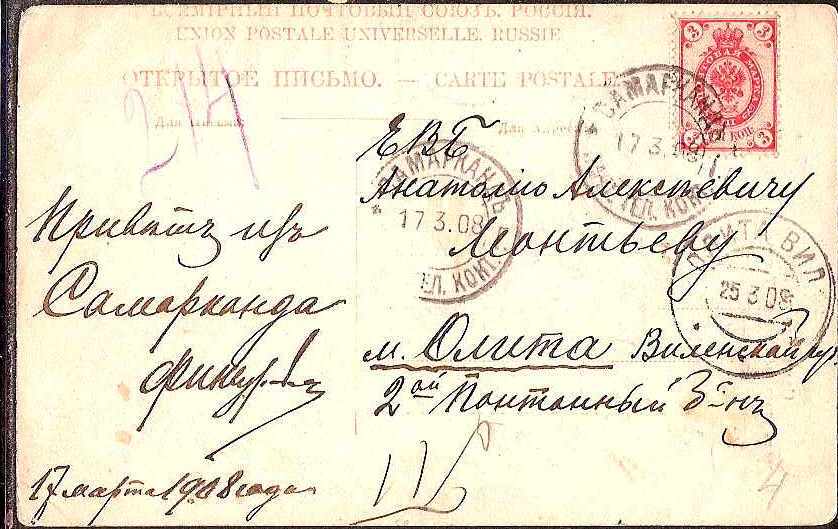 ВСЕМІРНЫЙ ПОЧТОВЫЙ СОЮЗЪ. РОССІЯ.
UNION POSTALE UNIVERSELLE. RUSSIE
ОТКРЫТОЕ ПИСЬМО. — CARTE POSTALE
Для письма.
Для адреса
3 3
3 КОП. 3
САМАРКАНДЪ
17 3.08
ТЕЛ. КОНТ.
САМАРКАНДЪ
17 3.08
ТЕЛ. КОНТ.
ОЛИТА ВИЛ
25 3 08
ЕВБ
Анатолію Алексѣевичу
Леонтьеву
м. Олита Виленской гу
2ой Понтонный Б-нъ
Привѣтъ изъ
Самарканда
17 марта 1908 года
4